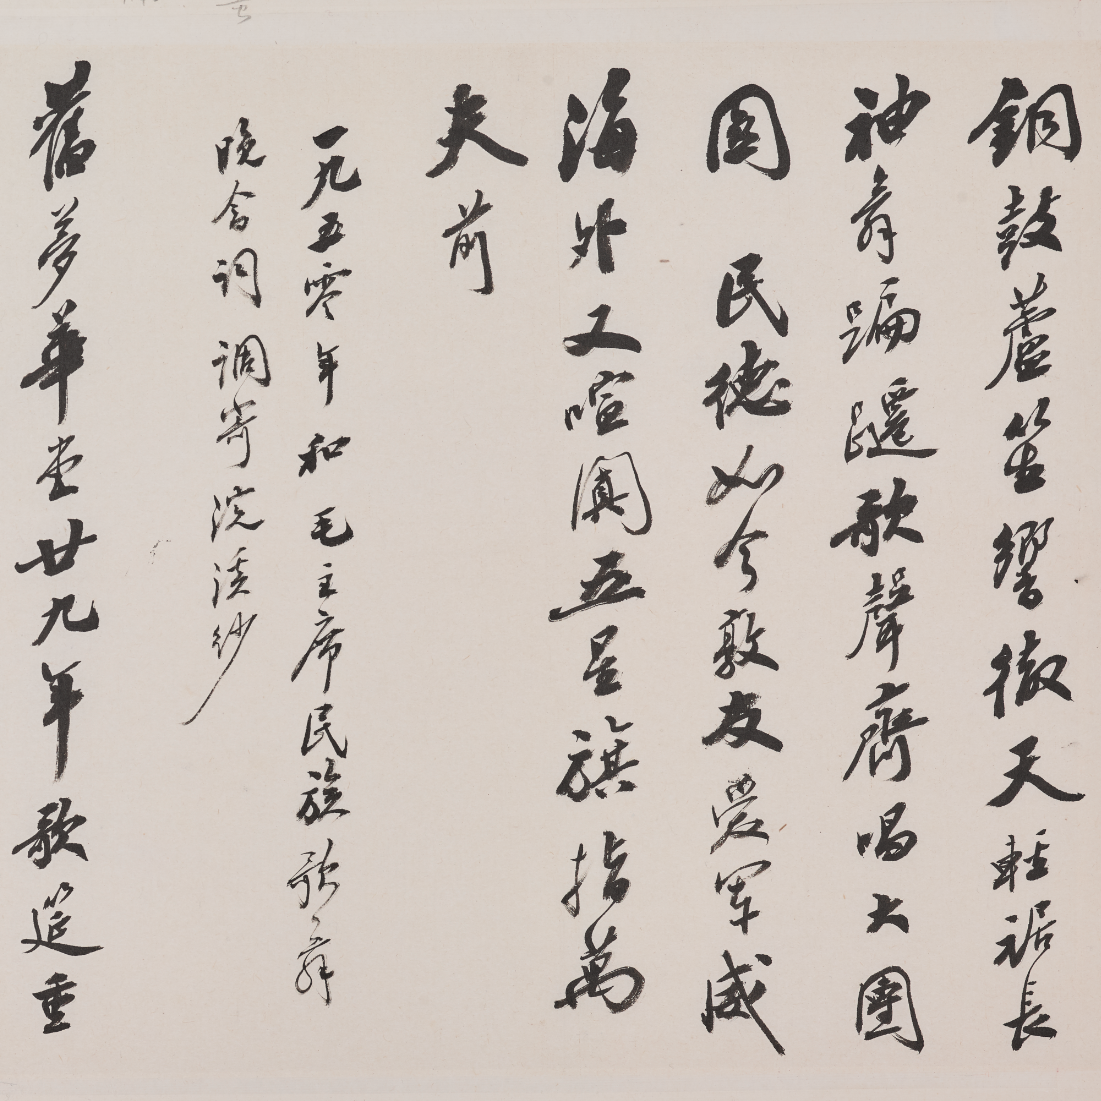 銅鼓蘆笙響徹天輕裾長
袖舞蹁躚歌聲齊唱大團
圓 民德如今敦友愛軍威
海外又喧闐五星旗指萬
夫前
一九五零年和毛主席民族歌舞
晚會詞調寄浣溪紗
舊夢華堂廿九年歌筵重